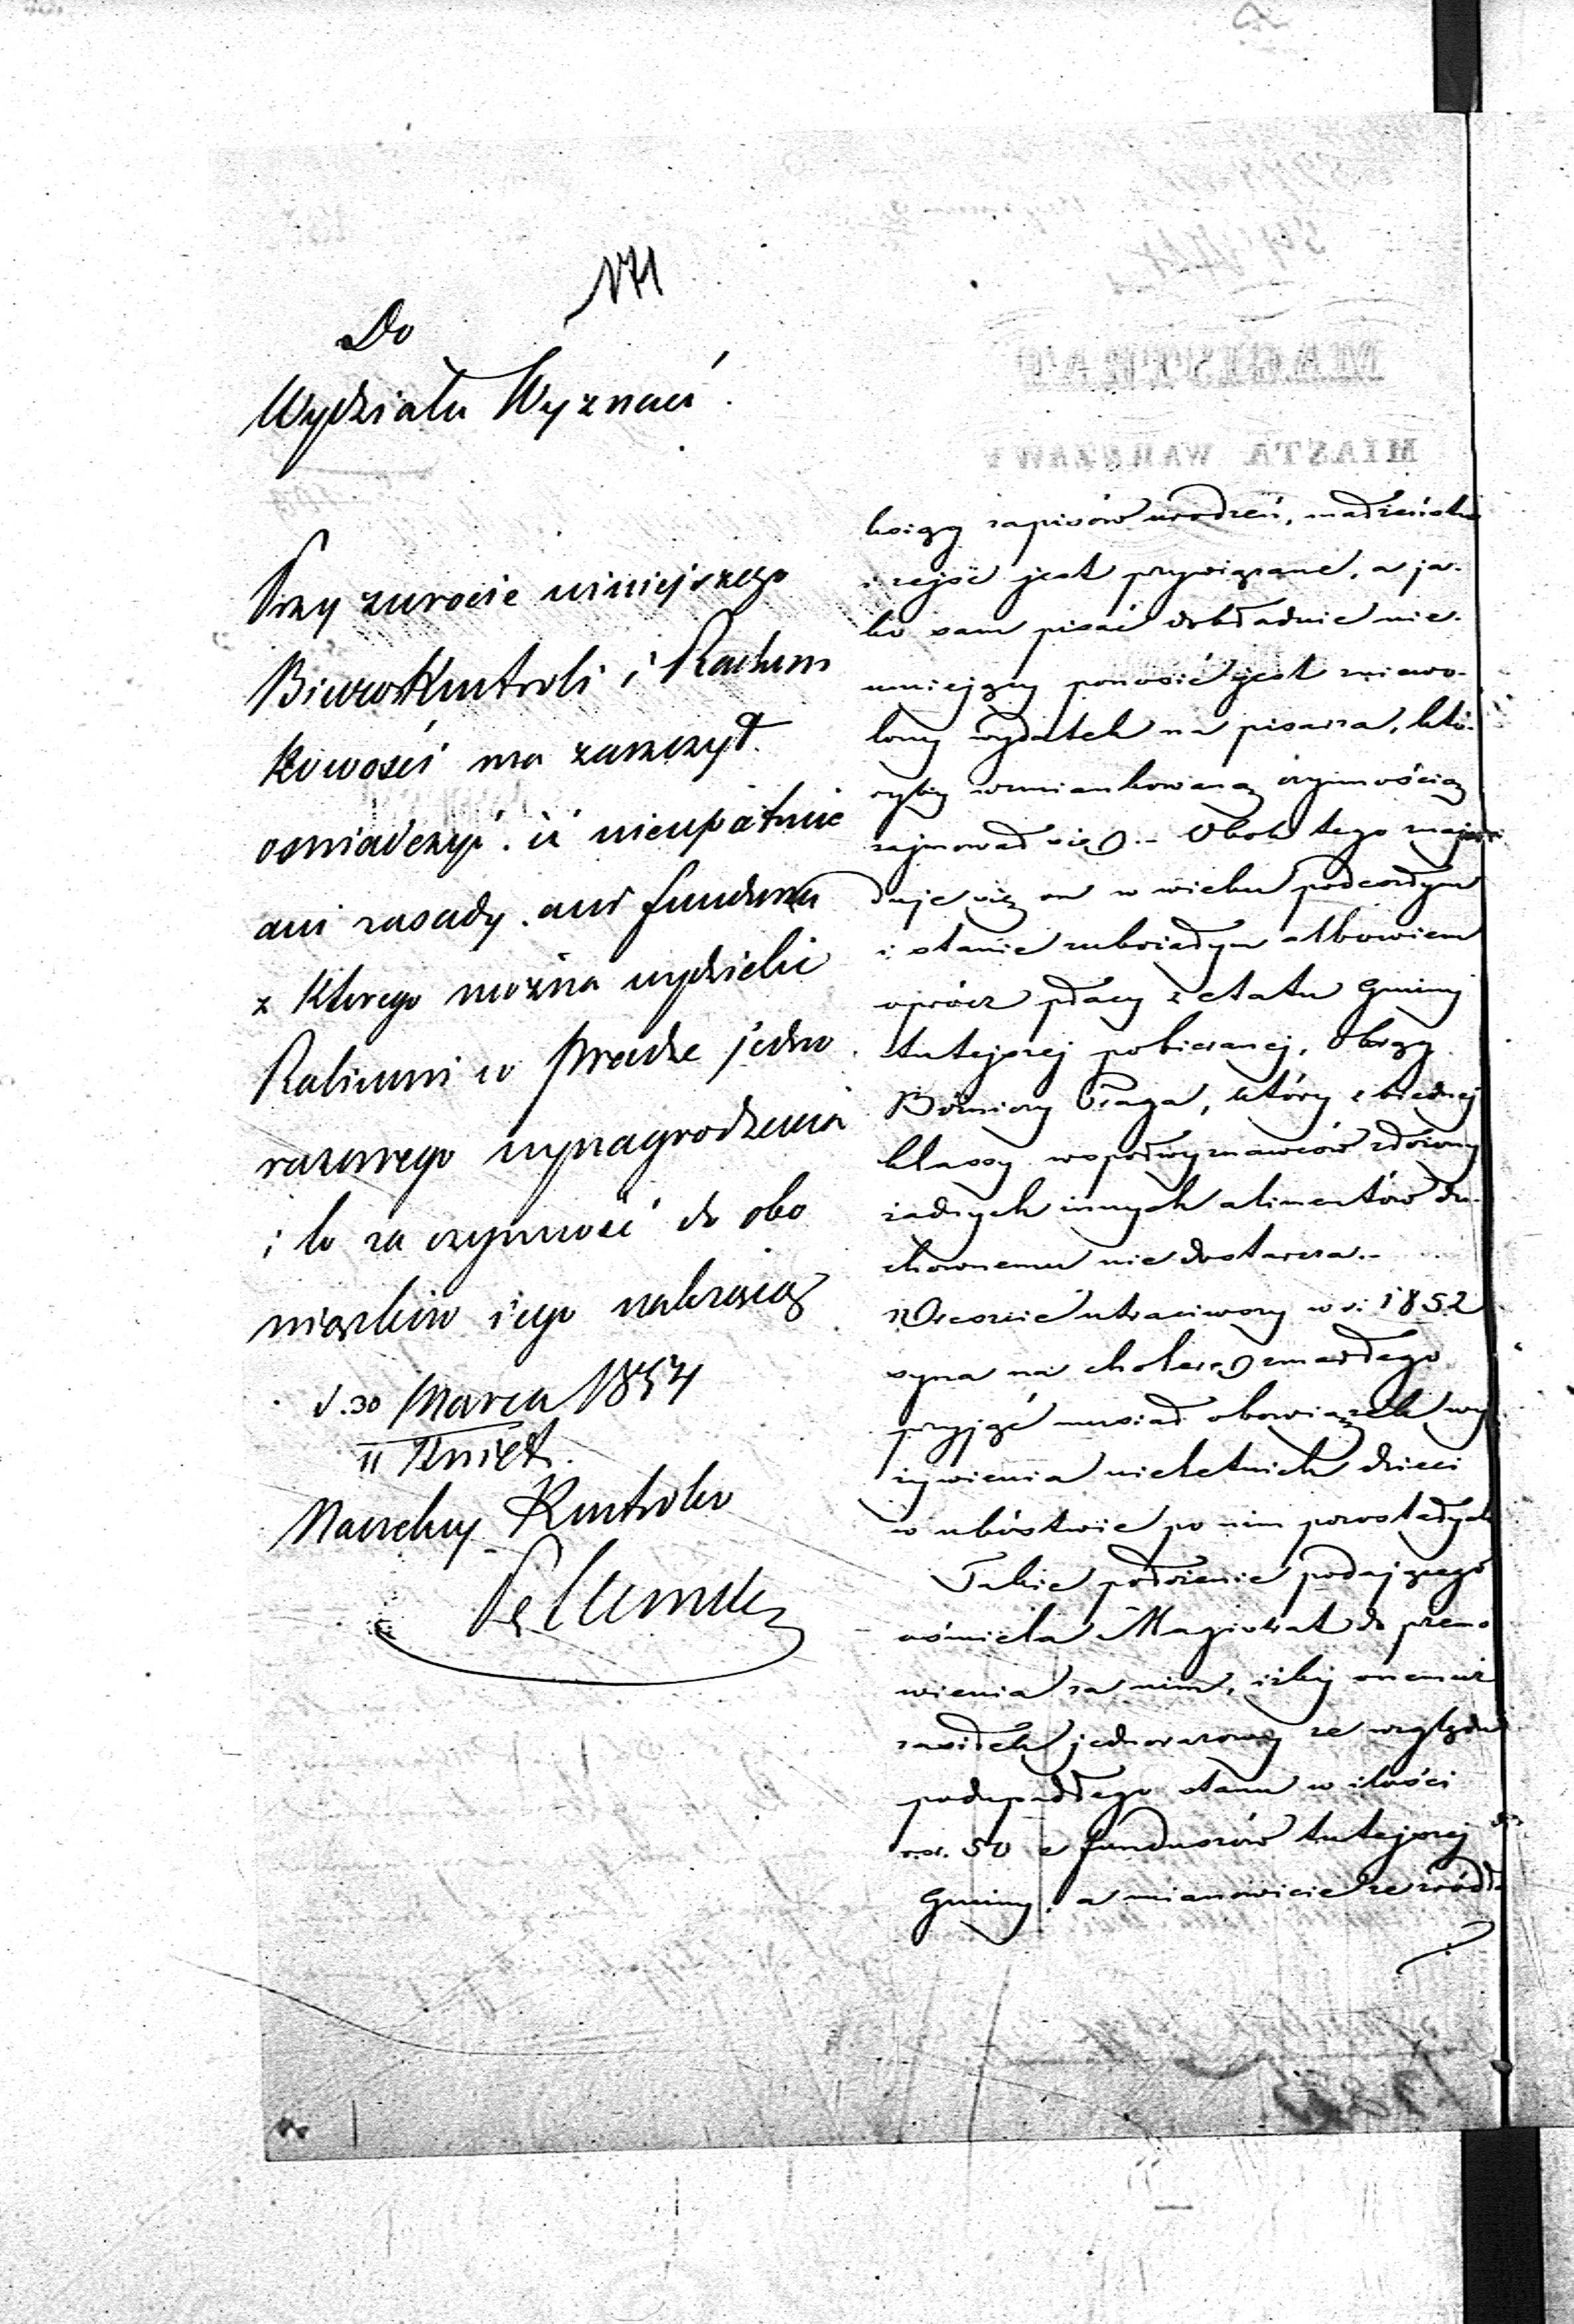 171
Do
Wydziału Wyznań.
Przy zwrocie niniejszego
Biuro Kontroli i Rachun
kowości ma zaszczyt
oświadczyć. iż nieupatruie
ani zasady. ani funduszu
z którego można wydzielić
Rabinowi w Pradze jedno
razowego wynagrodzenia
i to za czynność do obo
wiązków iego należącą
d. 30 Marca 1854
Kontroli
księgg zapisów urodzeń, małżeństw
i zejść jest przywiązane, a ja-
ko sam pisać dokładnie nie-
umiejący ponosić jest zniewo-
lony wydatek na pisarza, któ-
ryby wzmiankowaną czynnością
zajmował się.- Obok tego znaj
duje się on w wieku podeszłym
i stanie zubożałym albowiem
oprócz płacy z etatu Gminy
tutejszej pobieranej, Okręg
Bóżniczy Praga, który z biednej
klassy współwyznawców złożony
żadnych innych alimentów du-
chownemu nie dostarcza.-
Wreszcie utraciwszy w r. 1852
syna na cholerę zmarłego
przyjąć musiał obowiązek wy
żywienia nieletnich dzieci
w ubóstwie po nim pozostałych
Takie położenie podającego
ośmiela Magistrat do przemó
wienia za nim, iżby onemuż
zasiłek jednorazowy ze względu
podupadłego stanu w ilości
rsr. 50 z funduszów tutejszej
Gminy, a mianowicie ze źródła
MAGISTRAT
MIASTA WARSZAWY